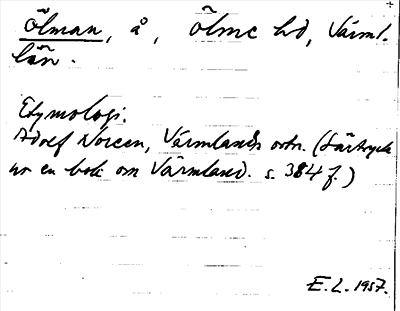 Ölman, å, Ölme hd, Värml.
län.
Etymologi:
Adolf Noreen, Värmlands ortn. (Särtryck
ur en bok om Värmland. s. 384 f.)
E. L. 1957.